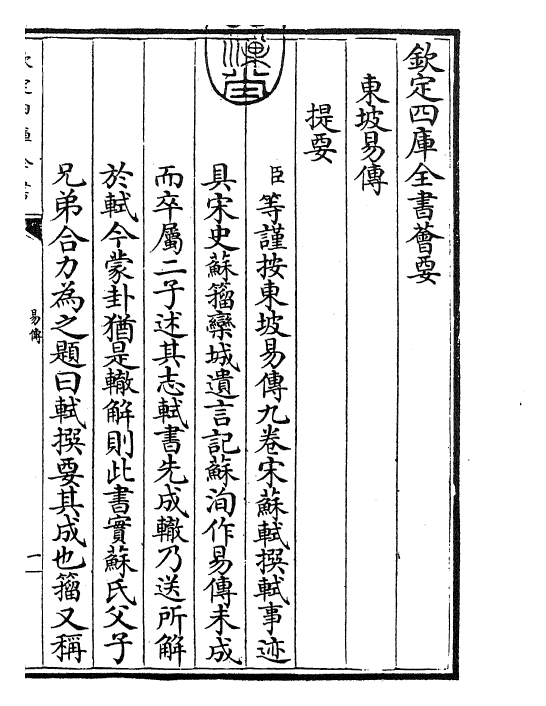 欽定四庫全書薈要
東坡易傳
提要
臣等謹按東坡易傳九卷宋蘇軾撰軾事迹
具宋史蘇籀欒城遺言記蘇洵作易傳未成
而卒屬二子述其志軾書先成轍乃送所解
於軾今蒙卦猶是轍解則此書實蘇氏父子
兄弟合力為之題曰軾撰要其成也籀又稱
易傳
一